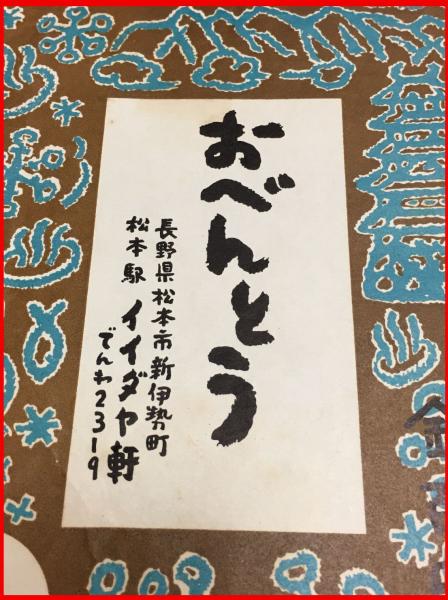 おべんとう
長野県松本市新伊勢町
松本駅 イイダヤ軒
でんわ2319